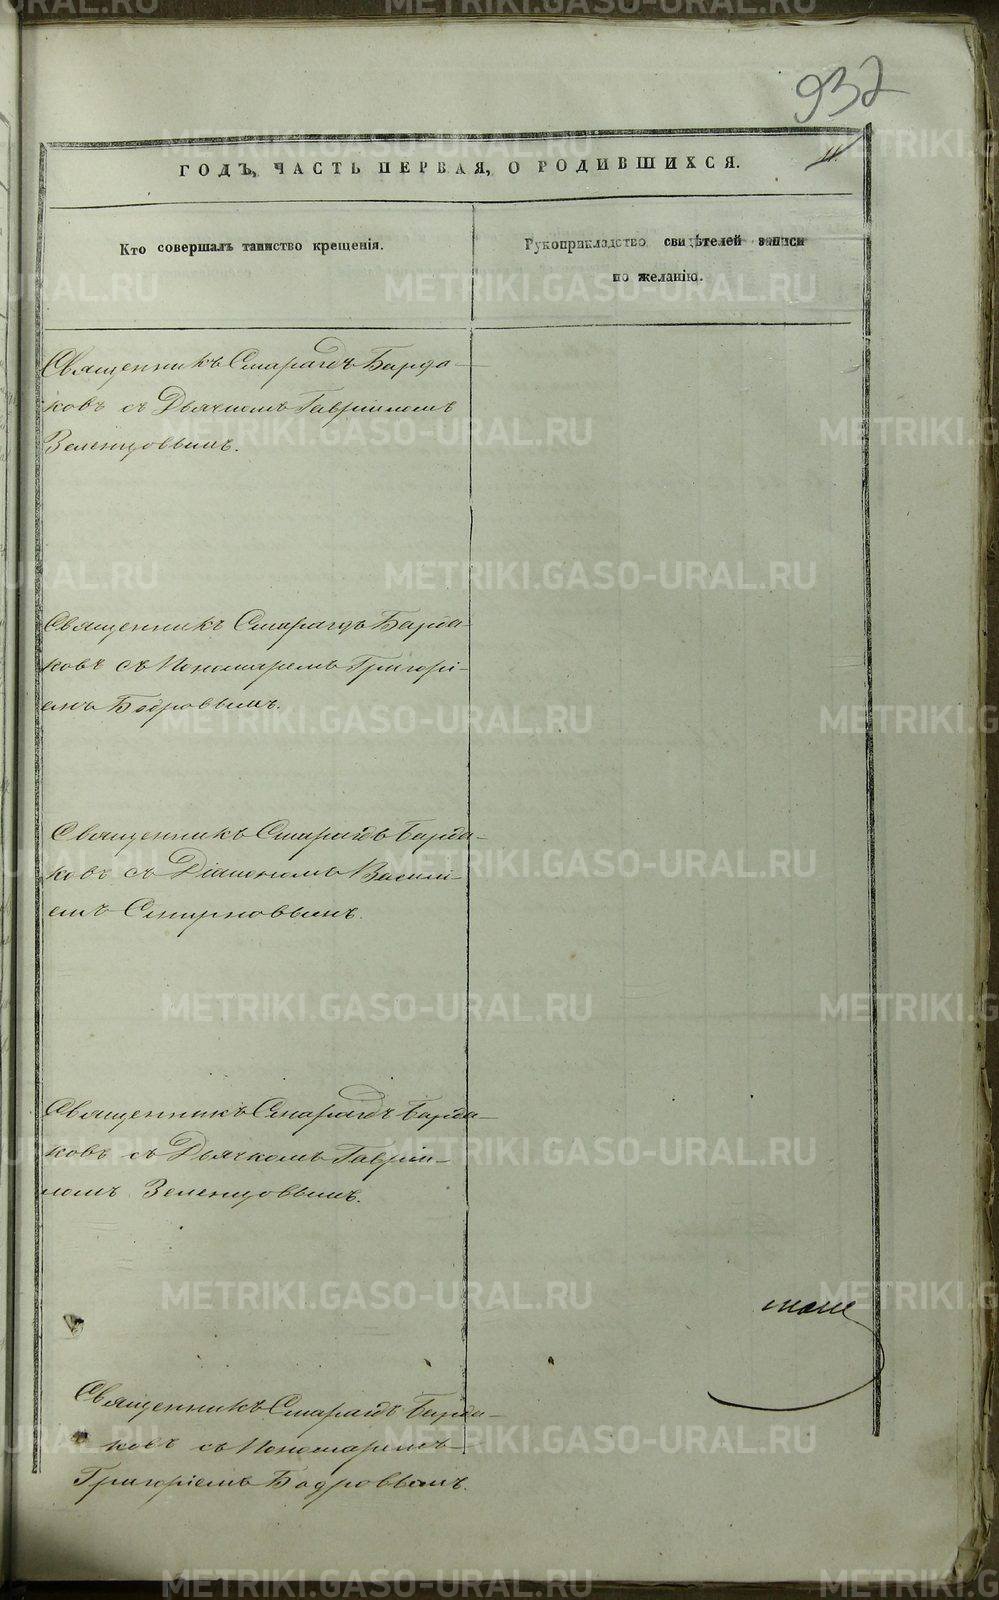 932
ГОДЪ, ЧАСТЬ ПЕРВАЯ, О РОДИВШИХСЯ.
Кто совершалъ таинство крещенія.
Рукоприкладство свидѣтелей записи
по желанію.
Священникъ Смарагдъ Барда-
ковъ съ Дьячкомъ Гавріиломъ
Зеленцовымъ.
Священникъ Смарагдъ Барда-
ковъ съ Пономаремъ Григорі-
емъ Бодровымъ.
Священникъ Смарагдъ Барда-
ковъ съ Діакономъ Василі-
емъ Смирновымъ.
Священникъ Смарагдъ Барда-
ковъ съ Дьячкомъ Гавріи-
ломъ Зеленцовымъ.
Священникъ Смарагдъ Барда-
ковъ съ Пономаремъ
Григоріемъ Бодровымъ.
METRIKI.GASO-URAL.RU